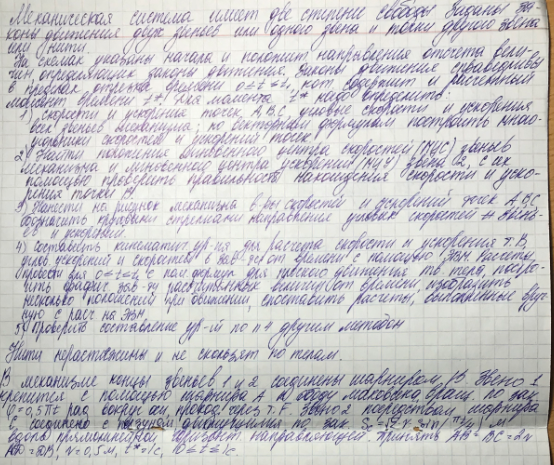 Механическая система имеет две степени свободы. Заданы за-
коны движения двух звеньев или одного звена и точки другого звена
или нити.
На схемах указаны начала и положит. направления отсчета вели-
чин, определяющих законы движения. Законы движения справедливы
в пределах отрезка времени 0≤t≤t₁, кот. содержит и расчетный
момент времени t*. Для момента t* надо определить:
1) скорости и ускорения точек A, B, C, угловые скорости и ускорения
всех звеньев механизма; по векторным формулам построить много-
угольники скоростей и ускорений точек
2) Найти положения мгновенного центра скоростей (МЦС) звеньев
механизма и мгновенного центра ускорений (МЦУ) звена 2, с их
помощью проверить правильность нахождения скорости и уско-
рения точки B
3) Нанести на рисунок механизма в-ры скоростей и ускорений точек A, B, C,
обозначить круговыми стрелками направление угловых скоростей
и ускорений
4) составить кинемат. ур-ия для расчета скорости и ускорения т. B,
углов. ускорений и скоростей в зав-ти от времени с помощью ЭВМ. Расчеты
провести для 0≤t≤t₁ с пом. формул для плоского движения тв. тела, постро-
ить график зав-ти рассчитанных величин от времени, изобразить
несколько положений при движении, сопоставить расчеты, выполненные вруч-
ную с расч. на ЭВМ.
5) Проверить составление ур-ий по п 4 другим методом
Нити нерастяжимы и не скользят по телам.
В механизме концы звеньев 1 и 2 соединены шарниром B. Звено 1
крепится с помощью шарнира A к ободу маховика, вращ. по зак.
φ=0,5πt рад вокруг оси, проход. через т. Звено 2 посредством шарнира
C соединено с ползуном, движущимся по зак. м
вдоль прямолинейной горизонт. направляющей. Принять AB=BC=2r
r=0,5м, t*=1c, 0≤t≤1c